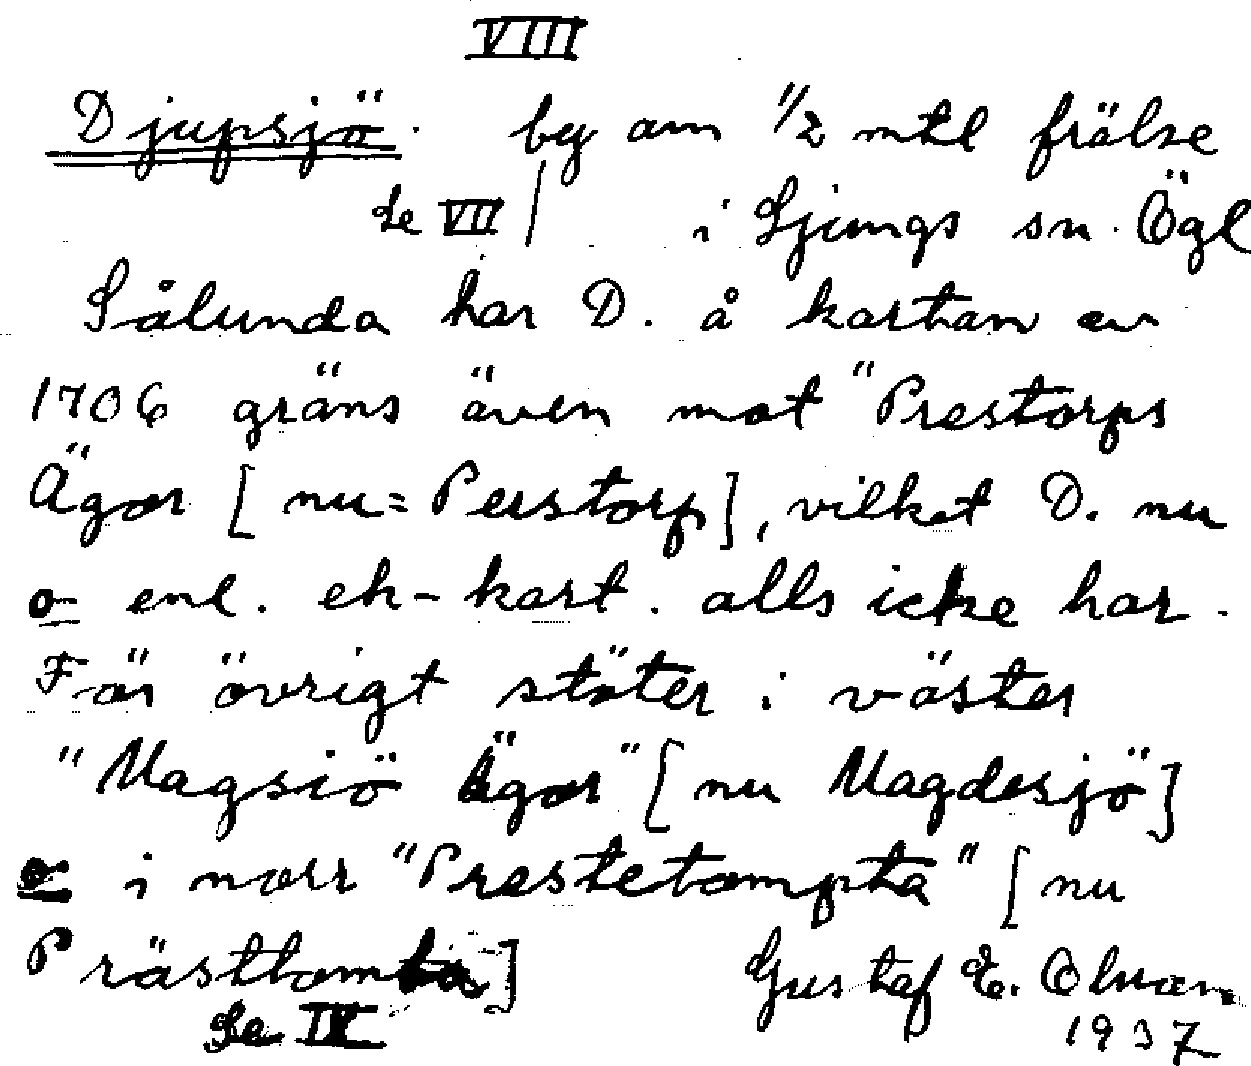 VIII
Djupsjö. by om 1/2 mtl frälse
Se VII / i Ljungs sn. Ögl
Sålunda har D. å kartan av
1706 gräns även mot "Prestorps
Ägor [nu = Perstorp], vilket D. nu
o enl. ek-kart. alls icke har.
För övrigt stöter i väster
"Magsiö Ägor" [nu Magdesjö]
o i norr "Prestetompta" [nu
Prästtomta]
Gustaf E.
Se IV 1937